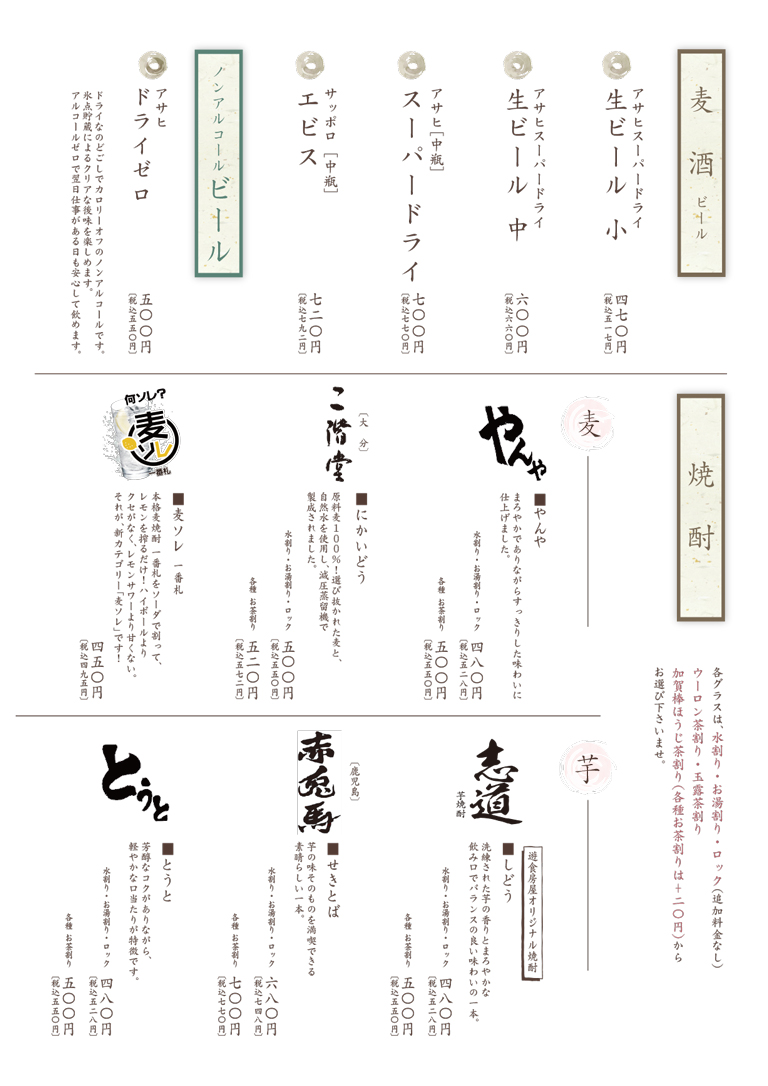 麦酒 ビール
アサヒスーパードライ
生ビール 小
四七〇円
[税込五一七円]
アサヒスーパードライ
生ビール 中
六〇〇円
[税込六六〇円]
アサヒ[中瓶]
スーパードライ
七〇〇円
[税込七七〇円]
サッポロ[中瓶]
エビス
七二〇円
[税込七九二円]
ノンアルコールビール
アサヒ
ドライゼロ
五〇〇円
[税込五五〇円]
ドライなのどごしでカロリーオフのノンアルコールです。
氷点貯蔵によるクリアな後味を楽しめます。
アルコールゼロで翌日仕事がある日も安心して飲めます。
焼酎
各グラスは、水割り・お湯割り・ロック(追加料金なし)
ウーロン茶割り・玉露茶割り
加賀棒ほうじ茶割り(各種お茶割りは+二〇円)から
お選び下さいませ。
麦
やんや
■やんや
まろやかでありながらすっきりした味わいに
仕上げました。
水割り・お湯割り・ロック 四八〇円
[税込五二八円]
各種 お茶割り 五〇〇円
[税込五五〇円]
[大分]
二階堂
■にかいどう
原料麦100%!選び抜かれた麦と、
自然水を使用し、減圧蒸留機で
製成されました。
水割り・お湯割り・ロック 五〇〇円
[税込五五〇円]
各種 お茶割り 五二〇円
[税込五七二円]
何ソレ?
麦ソレ
一番札
■麦ソレ 一番札
本格麦焼酎 一番札をソーダで割って、
レモンを搾るだけ!ハイボールより
クセがなく、レモンサワーより甘くない。
それが、新カテゴリー「麦ソレ」です!
四五〇円
[税込四九五円]
芋
遊食房屋オリジナル焼酎
志道
芋焼酎
■しどう
洗練された芋の香りとまろやかな
飲み口でバランスの良い味わいの一本。
水割り・お湯割り・ロック 四八〇円
[税込五二八円]
各種 お茶割り 五〇〇円
[税込五五〇円]
[鹿児島]
赤兎馬
■せきとば
芋の味そのものを満喫できる
素晴らしい一本。
水割り・お湯割り・ロック 六八〇円
[税込七四八円]
各種 お茶割り 七〇〇円
[税込七七〇円]
とうと
■とうと
芳醇なコクがありながら、
軽やかな口当たりが特徴です。
水割り・お湯割り・ロック 四八〇円
[税込五二八円]
各種 お茶割り 五〇〇円
[税込五五〇円]